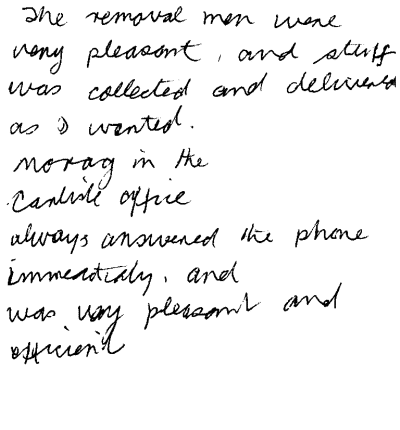 The removal men were
very pleasant, and stuff
was collected and delivered
as I wanted.
Morag in the
Carlisle office
always answered the phone
immediately, and
was very pleasant and
efficient